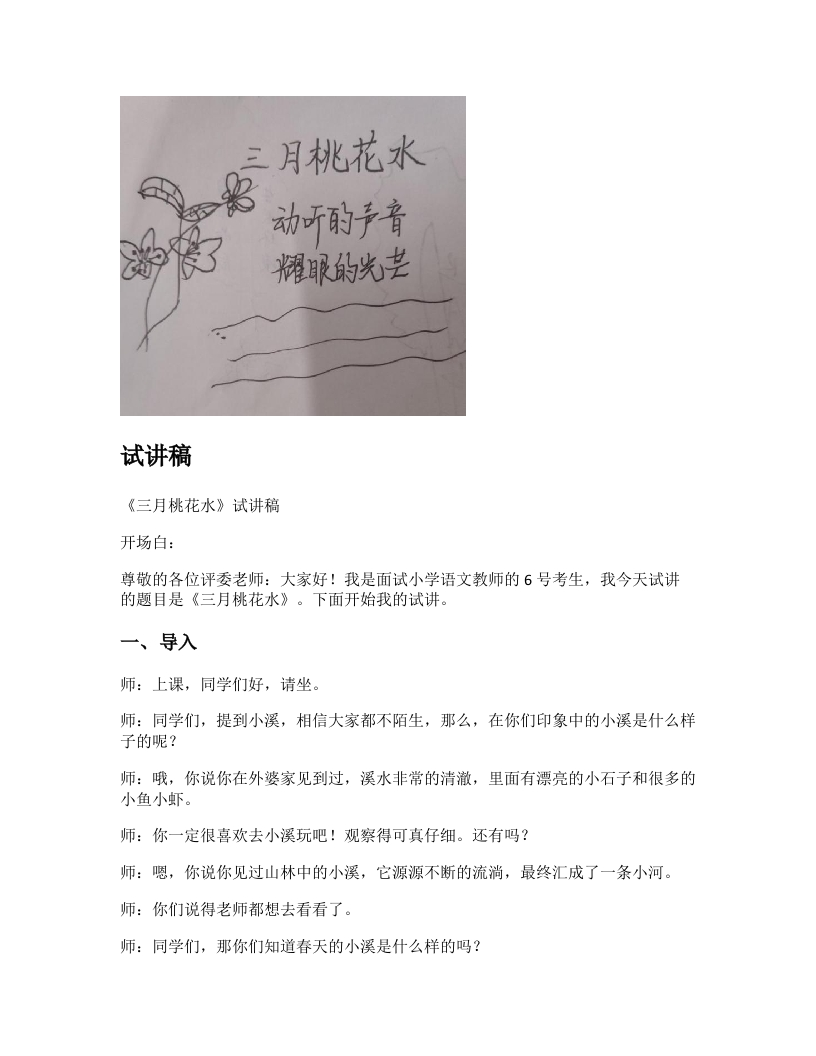 三月桃花水
动听的声音
耀眼的光芒
试讲稿
《三月桃花水》试讲稿
开场白：
尊敬的各位评委老师：大家好！我是面试小学语文教师的 6 号考生，我今天试讲
的题目是《三月桃花水》。下面开始我的试讲。
一、导入
师：上课，同学们好，请坐。
师：同学们，提到小溪，相信大家都不陌生，那么，在你们印象中的小溪是什么样
子的呢？
师：哦，你说你在外婆家见到过，溪水非常的清澈，里面有漂亮的小石子和很多的
小鱼小虾。
师：你一定很喜欢去小溪玩吧！观察得可真仔细。还有吗？
师：嗯，你说你见过山林中的小溪，它源源不断的流淌，最终汇成了一条小河。
师：你们说得老师都想去看看了。
师：同学们，那你们知道春天的小溪是什么样的吗？